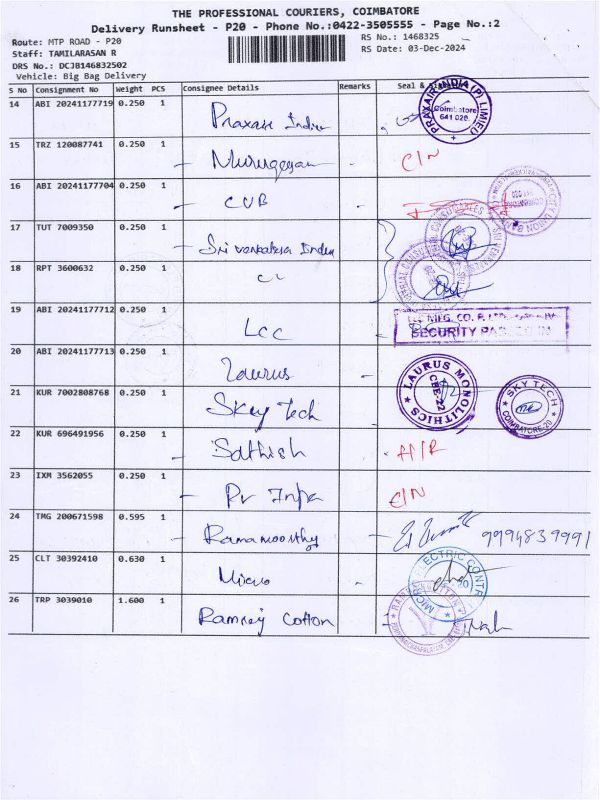 THE PROFESSIONAL COURIERS, COIMBATORE
Delivery Runsheet - P20 - Phone No.:0422-3505555 - Page No.:2
Route: MTP ROAD - P20
RS No.: 1468325
Staff: TAMILARASAN R
RS Date: 03-Dec-2024
DRS No.: DCJB146832502
Vehicle: Big Bag Delivery
S No Consignment No Weight PCS Consignee Details Remarks Seal &
14 ABI 20241177719 0.250 1 Praxair India
PRAXAIR INDIA (P) LIMITED Coimbatore 641 020.
15 TRZ 120087741 0.250 1 - Murugesan - C/N
16 ABI 20241177704 0.250 1 - CUB -
17 TUT 7009350 0.250 1 - Sri venkatesa Inden
18 RPT 3600632 0.250 1
19 ABI 20241177712 0.250 1 LCC
MFG. CO. P. SECURITY
20 ABI 20241177713 0.250 1 Laurus -
LAURUS MONOLITHICS CBE-22
21 KUR 7002808768 0.250 1 Sky Tech
SKY TECH COIMBATORE-20
22 KUR 696491956 0.250 1 - Sathish - H/R
23 IXM 3562055 0.250 1 - Pr Infra C/N
24 TMG 200671598 0.595 1 - Ramamoorthy - 9994839991
25 CLT 30392410 0.630 1 Micro -
MICRO ELECTRIC CONTR
26 TRP 3039010 1.600 1 Ramrej Cotton